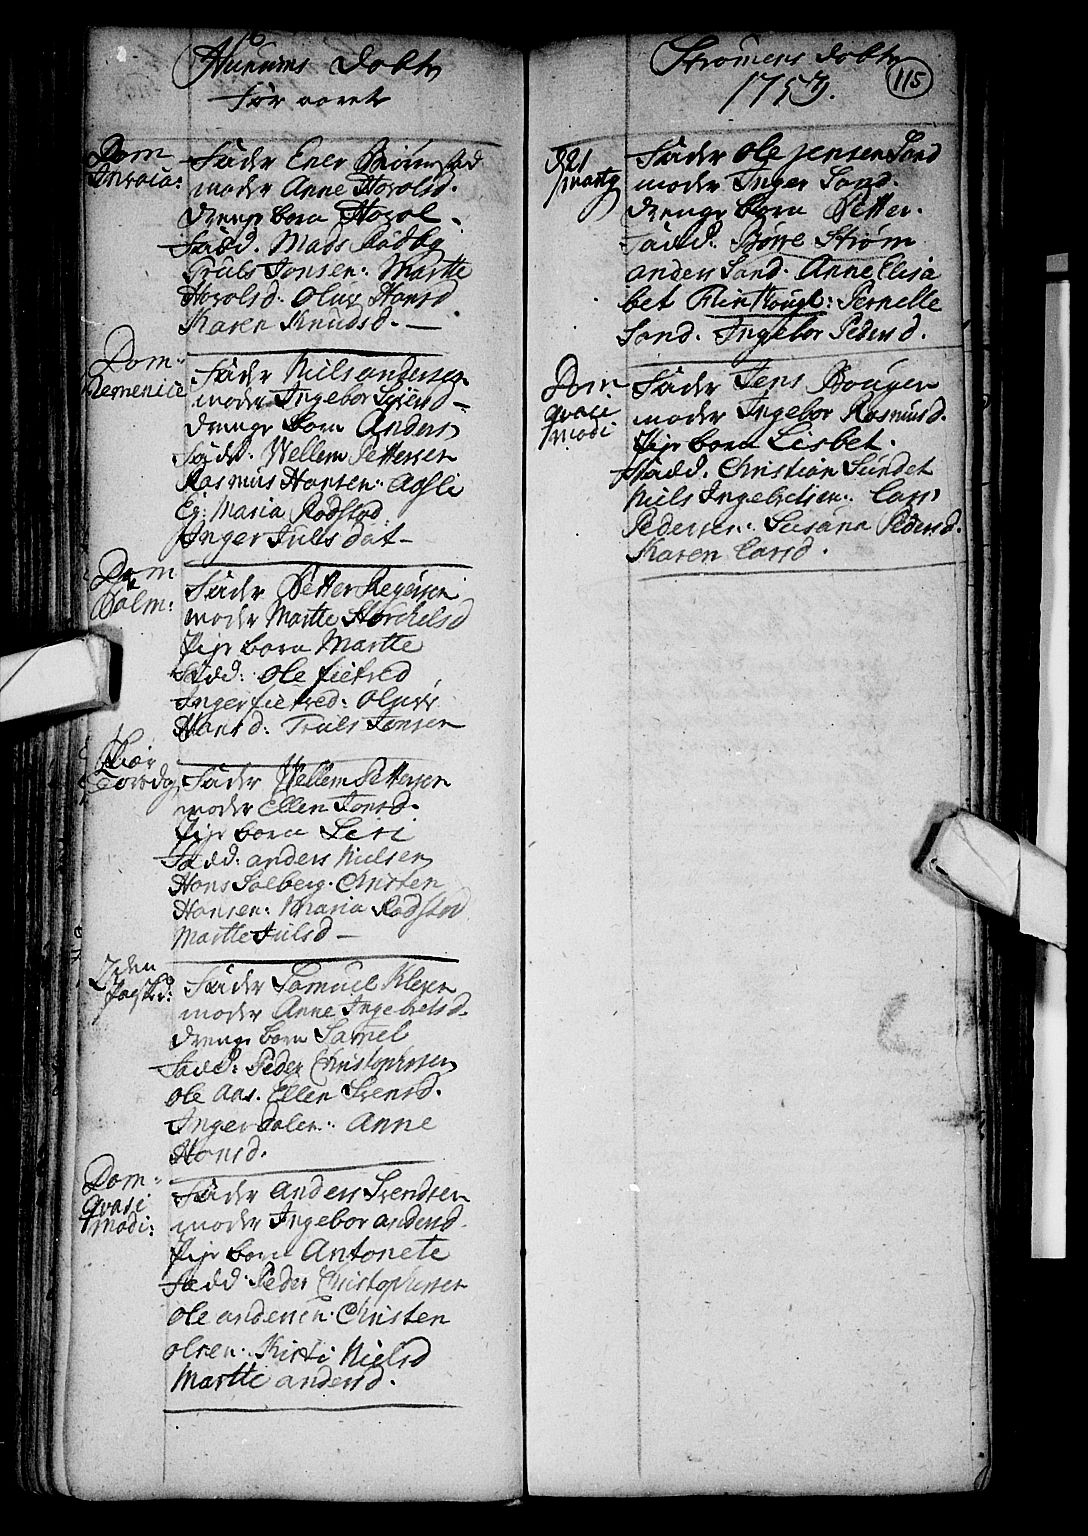 Hurums Døbte
før aaret
Dom
Invoca:
Fader Ener Brømstad
moder Anne Horolsd.
drenge barn Horol.
Fadd. Mads Rødby
Truls Jonsen: Marthe
Horolsd. Oluv Hansd
Karen Knudsd. —
Dom:
Remenice
Fader Niels andersen
moder Ingebor
drenge barn Anders
Fadd. Wellem Pettersen
Rasmus Hansen: Asle
Eg: Maria Rødstad
Inger Juls dat —
Dom
Palm:
Fader Petter Regersen
moder Marthe Torchelsd
Pige barn Marthe
Fadd: Ole fietred
Inger fietred: Oluv
Hansd: Truls Jonsen
Skiær
Torsdag
Fader Wellem Pettersen
moder Ellen Jonsd.
Pige barn Lisi
Fadd: anders Nielsen
Hans Solberg. Christen
Hansen: Maria Rødstad
Marthe Julsd —
2den
Paaskd:
Fader Samuel Klesen
moder Anne Ingebretsd.
drenge barn Samel
Fadd: Peder Christophersen
Ole Aas. Ellen Svensd.
Inger Dalen: Anne
Hansd.
Dom:
Qvasi
modi:
Fader Anders Svendsen
moder Ingebor andersd.
Pige barn Antonete
Fadd: Peder Christophersen
Ole andersen. Christen
olsen: Kirsti Nielsd
Marthe andersd.
Strømens døbte
115
1753.
d 21
marty
Fader Ole Jensen Sand
moder Inger Sand.
drenge barn Petter.
Fadd: Børre Strøm
anders Sand. Anne Elisa
bet Rinthough: Pernelle
Sand. Ingebor Pedersd.
Dom:
qvasi
modi
Fader Jens Bougen
moder Ingebor Rasmusd.
Pige barn Lisbet.
Fadd. Christian Sundet
Niels Ingebretsen: Lars
Pedersen: Susana Pedersd.
Karen Larsd.